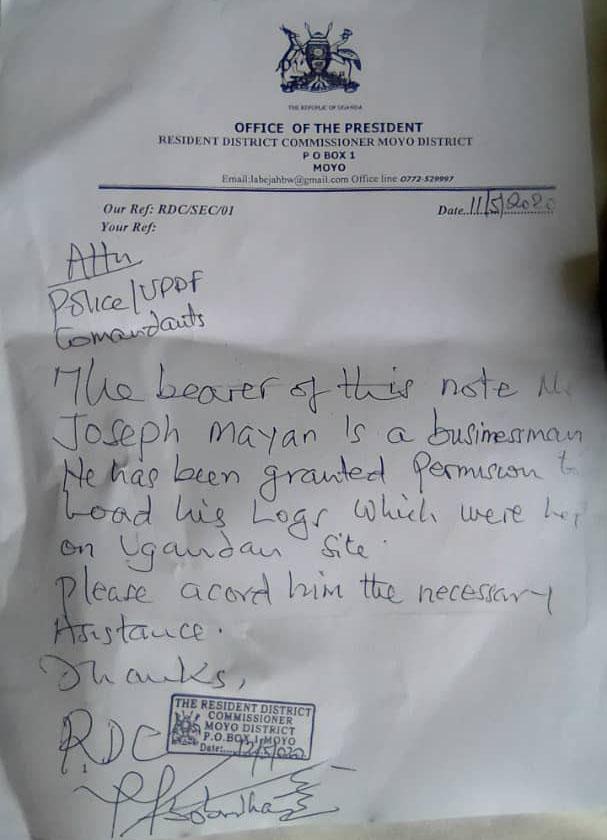 THE REPUBLIC OF UGANDA
OFFICE OF THE PRESIDENT
RESIDENT DISTRICT COMMISSIONER MOYO DISTRICT
P O BOX 1
MOYO
Email:labejahbw@gmail.com Office line 0772-529997
Our Ref: RDC/SEC/01
Date..11/5/2020
Your Ref:
Attn
Police/UPDF
Comandants
The bearer of this note
Joseph Mayan Is a businessman
He has been granted Permision
Load his Logs which were
on Ugandan Site.
Please acord him the necessary
Asistance.
Thanks,
RDC
THE RESIDENT DISTRICT
COMMISSIONER
MOYO DISTRICT
P.O.BOX 1,MOYO
Date: